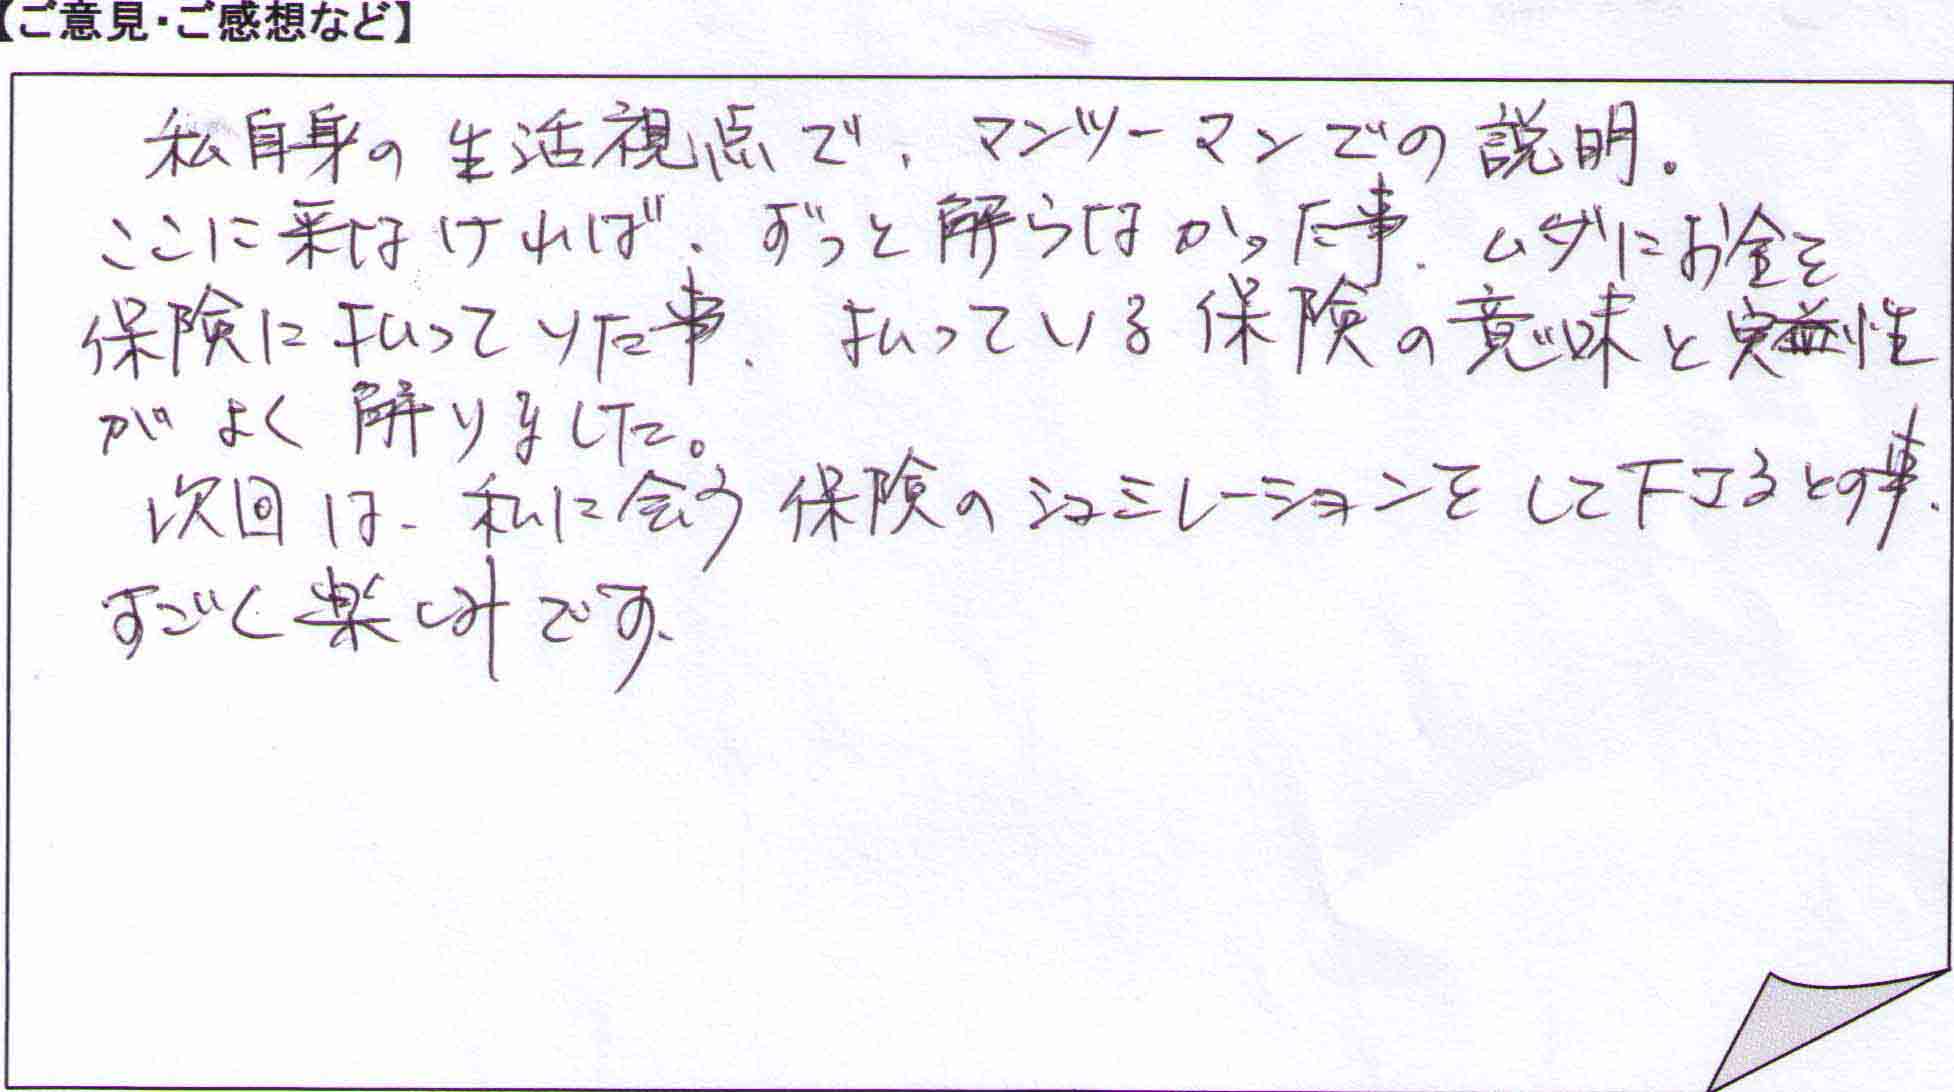 【ご意見・ご感想など】
私自身の生活視点で、マンツーマンでの説明。
ここに来なければ、ずっと解らなかった事、ムダにお金を
保険に払っていた事、払っている保険の意味と実益性
がよく解りました。
次回は、私に会う保険のシュミレーションをして下さるとの事、
すごく楽しみです。